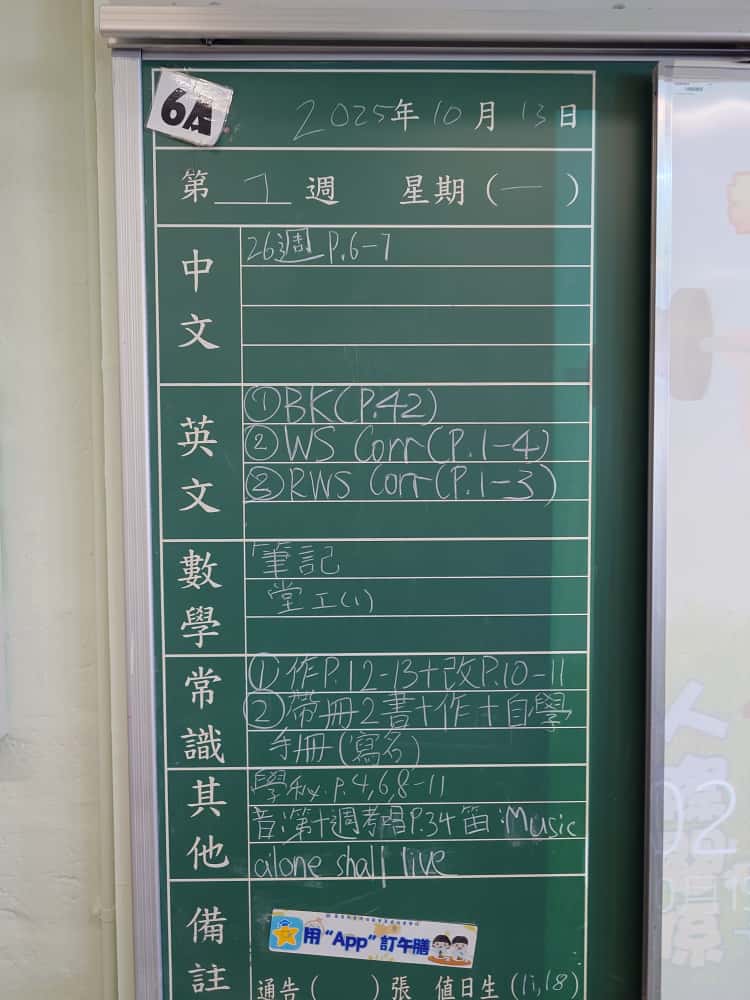 6A
2025年10月13日
第 7 週 星期(一)
中文
26週 P.6-7
英文
①BK(P.42)
②WS Corr(P.1-4)
③RWS Corr(P.1-3)
數學
筆記
堂工(1)
常識
①作P.12-13+改P.10-11
②帶冊2書+作+自學
手冊(寫名)
其他
P.4,6,8-11
音:第十週考唱P.34 笛:Music
alone shall live
備註
用“App”訂午膳
通告( )張 值日生(11,18)